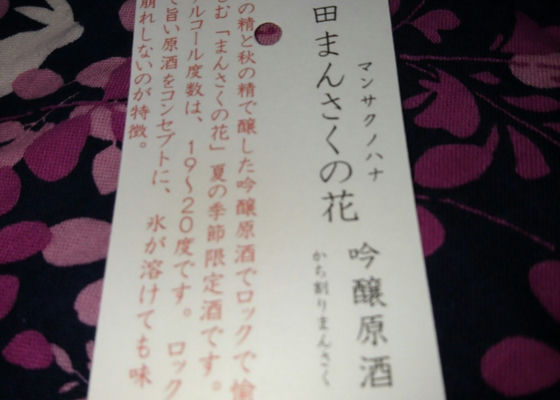 マンサクノハナ
田まんさくの花
吟醸原酒
かち割りまんさく
の精と秋の精で醸した吟醸原酒でロックで愉
む「まんさくの花」夏の季節限定酒です。
ルコール度数は、19〜20度です。ロック
で旨い原酒をコンセプトに、氷が溶けても味
崩れしないのが特徴。